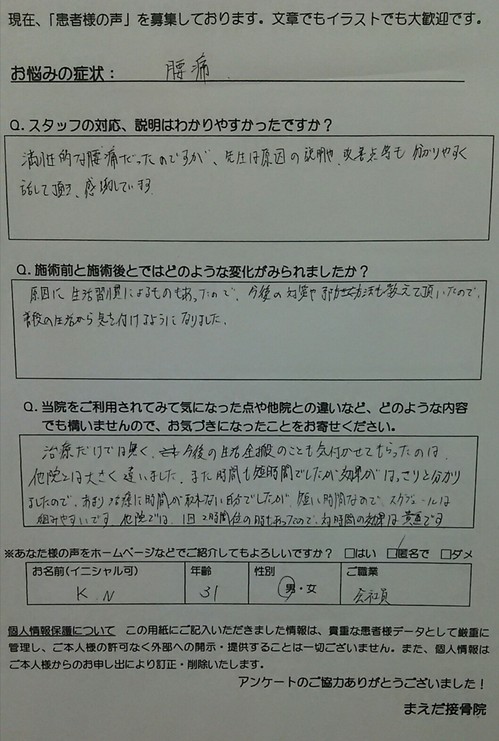 現在、「患者様の声」を募集しております。文章でもイラストでも大歓迎です。
お悩みの症状： 腰痛
Q. スタッフの対応、説明はわかりやすかったですか？
慢性的な腰痛だったのですが、先生は原因の説明や、改善点等も 分かりやすく
話して頂き、感謝しています。
Q. 施術前と施術後とではどのような変化がみられましたか？
原因に生活習慣によるものもあったので、今後の対策や 予防方法も教えて頂いたので、
普段の生活から気を付けるようになりました。
Q. 当院をご利用されてみて気になった点や他院との違いなど、どのような内容
でも構いませんので、お気づきになったことをお寄せください。
治療だけでは無く、今後の生活全般のことも気付かせてもらったのは、
他院とは大きく違いました。また時間も短時間でしたが効果がはっきりと分かり
ましたので、あまり治療に時間が取れない自分でしたが、短い時間なので、スケジュールは
組みやすいです。他院では、1回2時間位の時もあったので、対時間の効果は最高です
※あなた様の声をホームページなどでご紹介してもよろしいですか？ □はい □匿名で □ダメ
お名前(イニシャル可) 年齢 性別 ご職業
K.N 31 男・女 会社員
個人情報保護について この用紙にご記入いただきました情報は、貴重な患者様データとして厳重に
管理し、ご本人様の許可なく外部への開示・提供することは一切ございません。また、個人情報は
ご本人様からのお申し出により訂正・削除いたします。
アンケートのご協力ありがとうございました！
まえだ接骨院